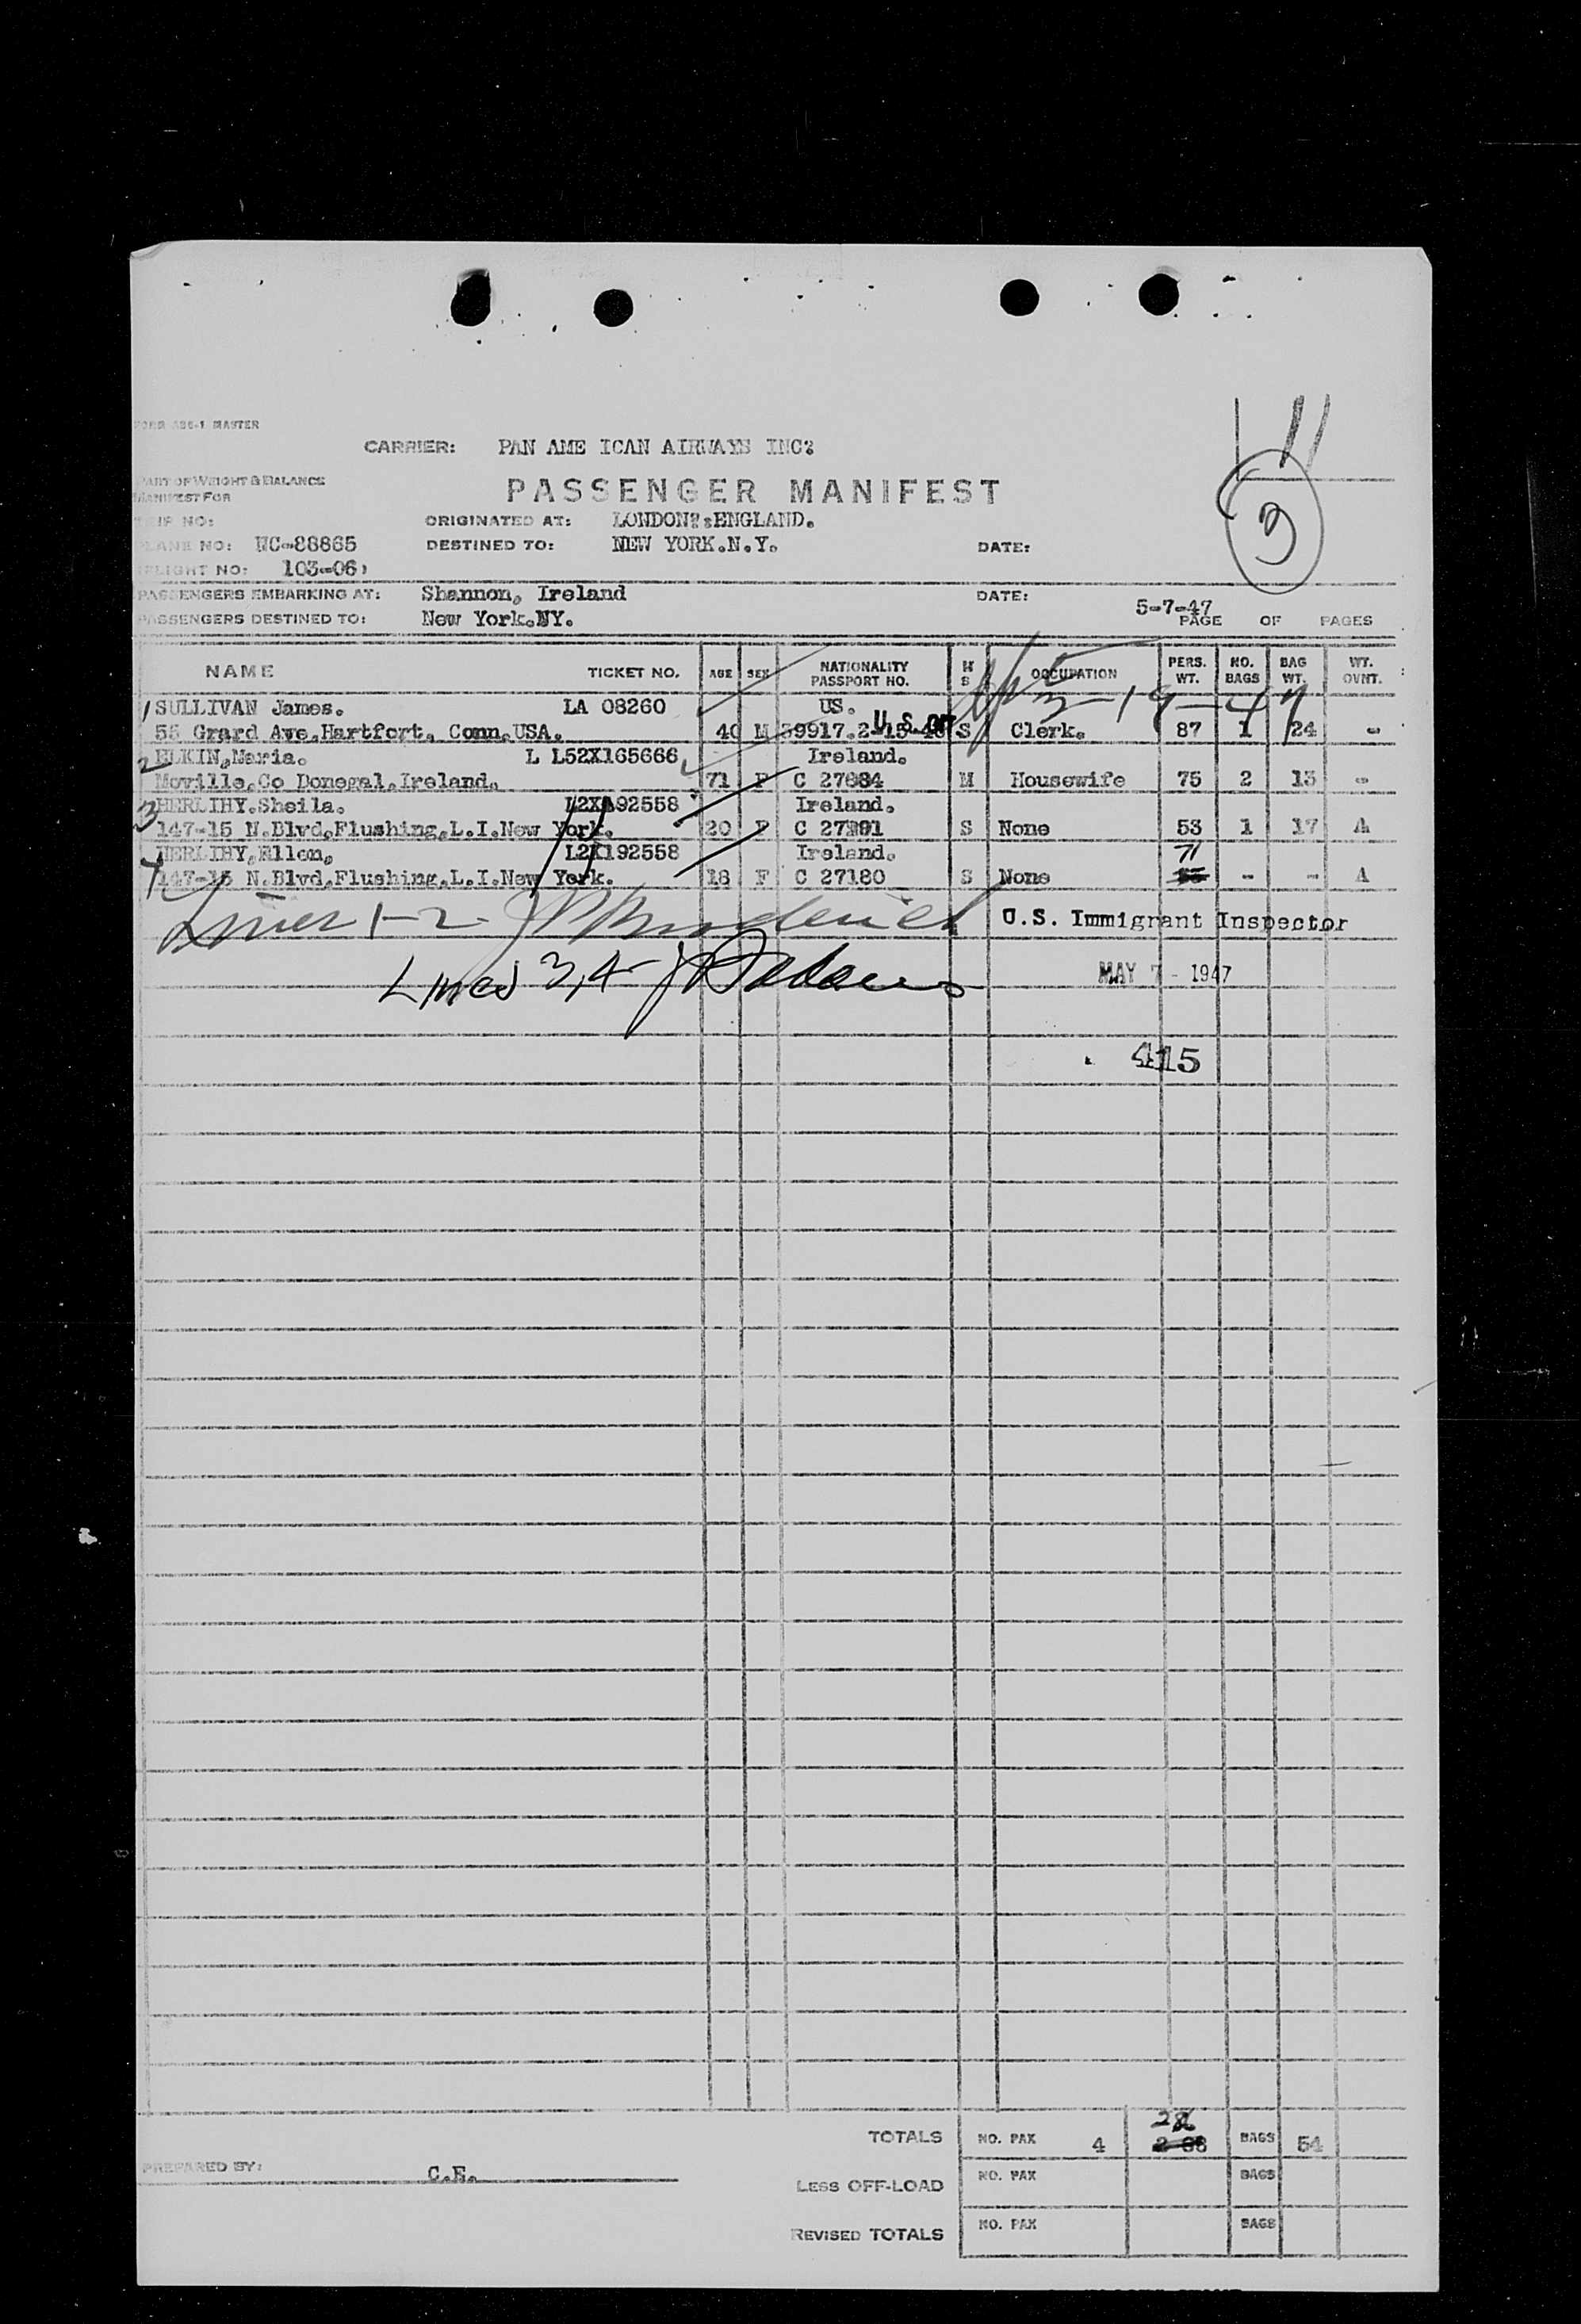 FORM 486-1 MASTER
11
CARRIER: PAN AME ICAN AIRWAYS INC?
PART OF WEIGHT & BALANCE
MANIFEST FOR
PASSENGER MANIFEST
TRIP NO: ORIGINATED AT: LONDON?.ENGLAND.
PLANE NO: NC-88865 DESTINED TO: NEW YORK.N.Y. DATE:
FLIGHT NO: 103-06
PASSENGERS EMBARKING AT: Shannon, Ireland DATE: 5-7-47
PASSENGERS DESTINED TO: New York.NY. PAGE OF PAGES
NAME TICKET NO. AGE SEX NATIONALITY PASSPORT NO. M S OCCUPATION PERS. WT. NO. BAGS BAG WT. WT. OVNT.
1 SULLIVAN James. LA 08260 US.
55 Grard Ave.Hartfort. Conn.USA. 40 M 39917.2-15-46 S Clerk. 87 1 24 -
2 ELKIN,Maria. L L52X165666 Ireland.
Moville.Co Donegal.Ireland. 71 F C 27684 M Housewife 75 2 13 -
3 HERLIHY.Sheila. L2X192558 Ireland.
147-15 N.Blvd.Flushing.L.I.New York. 20 F S None 53 1 17 A
HERLIHY,Ellen. L2X192558 Ireland. 71
147-15 N.Blvd.Flushing.L.I.New York. 18 F C 27180 S None - - A
Lines 1-2 U.S. Immigrant Inspector
Lines 3,4 MAY 7 - 1947
415
TOTALS NO. PAX 4 BAGS 54
PREPARED BY: C.E.
LESS OFF-LOAD NO. PAX BAGS
REVISED TOTALS NO. PAX BAGS